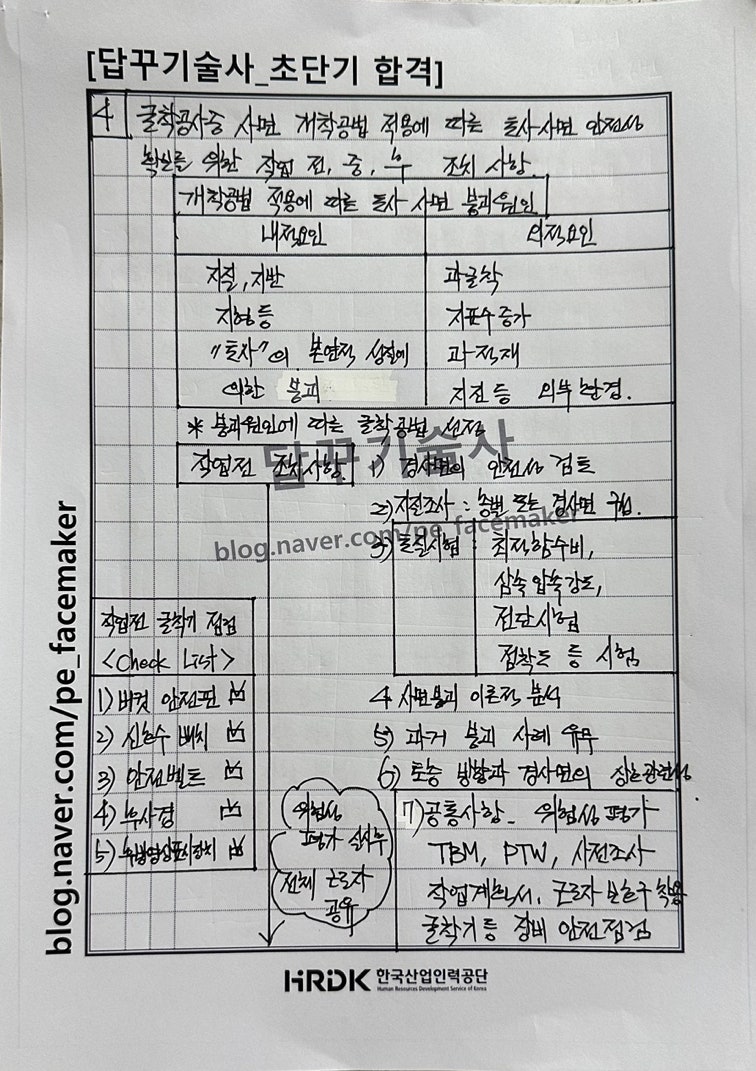 [답꾸기술사_초단기 합격]
4 굴착공사중 사면 개착공법 적용에 따른 토사사면 안전성
확보를 위한 작업 전, 중, 후 조치 사항.
개착공법 적용에 따른 토사 사면 붕괴원인
내적요인 외적요인
지질, 지반 과굴착
지형 등 지표수 증가
"토사"의 본연적 성질에 과적재
의한 붕괴 지진 등 외부환경.
* 붕괴원인에 따른 굴착공법 선정
답꾸기술사
작업전 조치사항 1) 경사면의 안전성 검토
2) 지질조사 : 층별 또는 경사면 구성
blog.naver.com/pe_facemaker
3) 토질시험 : 최적함수비,
삼축압축강도,
전단시험
점착도 등 시험
작업전 굴착기 점검
<Check List>
1) 버컷 안전핀 ☑
2) 신호수 배치 ☑
3) 안전벨트 ☑
4) 후사경 ☑
5) 후방영상표시장치 ☑
4 사면붕괴 이론적 분석
5) 과거 붕괴 사례 유무
6) 토층 방향과 경사면의 상호관련성
위험성
평가 실시후
전체 근로자
공유
7) 공통사항_ 위험성 평가
TBM, PTW, 사전조사
작업계획서, 근로자 보호구 착용
굴착기 등 장비 안전점검
blog.naver.com/pe_facemaker
HRDK 한국산업인력공단
Human Resources Development Service of Korea